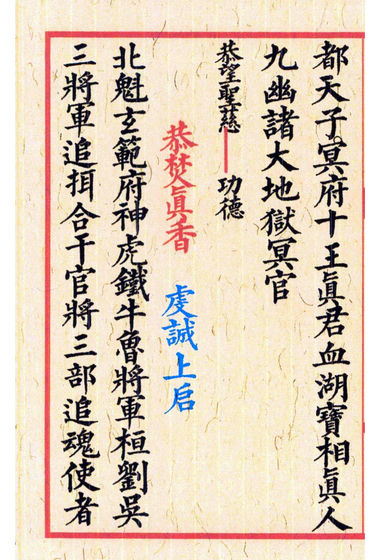 都天子冥府十王眞君血湖寶相眞人
九幽諸大地獄冥官
恭望聖慈 功德
恭焚眞香 虔誠上启
北魁玄範府神虎鐵牛魯將軍桓劉吳
三將軍追𢬵合干官將三部追魂使者